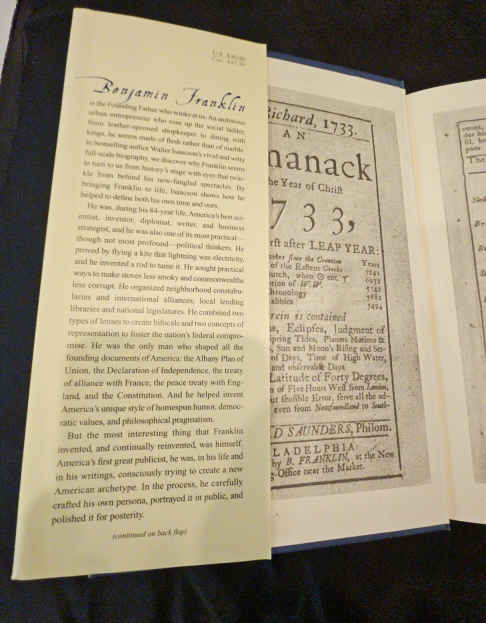 U.S. $30.00
Benjamin Franklin
is the Founding Father who winks at us. An ambitious
urban entrepreneur who rose up the social ladder,
from leather-aproned shopkeeper to dining with
kings, he seems made of flesh rather than of marble.
In bestselling author Walter Isaacson's vivid and witty
full-scale biography, we discover why Franklin seems
to turn to us from history's stage with eyes that twin-
kle from behind his new-fangled spectacles. By
bringing Franklin to life, Isaacson shows how he
helped to define both his own time and ours.
He was, during his 84-year life, America's best sci-
entist, inventor, diplomat, writer, and business
strategist, and he was also one of its most practical—
though not most profound—political thinkers. He
proved by flying a kite that lightning was electricity,
and he invented a rod to tame it. He sought practical
ways to make stoves less smoky and commonwealths
less corrupt. He organized neighborhood constabu-
laries and international alliances, local lending
libraries and national legislatures. He combined two
types of lenses to create bifocals and two concepts of
representation to foster the nation's federal compro-
mise. He was the only man who shaped all the
founding documents of America: the Albany Plan of
Union, the Declaration of Independence, the treaty
of alliance with France, the peace treaty with Eng-
land, and the Constitution. And he helped invent
America's unique style of homespun humor, democ-
ratic values, and philosophical pragmatism.
But the most interesting thing that Franklin
invented, and continually reinvented, was himself.
America's first great publicist, he was, in his life and
in his writings, consciously trying to create a new
American archetype. In the process, he carefully
crafted his own persona, portrayed it in public, and
polished it for posterity.
(continued on back flap)
Richard, 1733.
AN
manack
the Year of Chrift
733,
rft after LEAP YEAR:
from the Creation Years
of the Eastern Greeks 7241
urch, when ☉ ent. ♈ 6932
tion of W.W. 5742
hronology 5682
abbies 5494
rein is contained
ns, Eclipfes, Judgment of
Spring Tides, Planets Motions &
Sun and Moon's Rifing and Set-
of Days, Time of High Water,
and obfervable Days
Latitude of Forty Degrees,
n of Five Hours Weft from London,
ut fenfible Error, ferve all the ad-
even from Newfoundland to South-
D SAUNDERS, Philom.
LADELPHIA:
by B. FRANKLIN, at the New
g-Office near the Market.